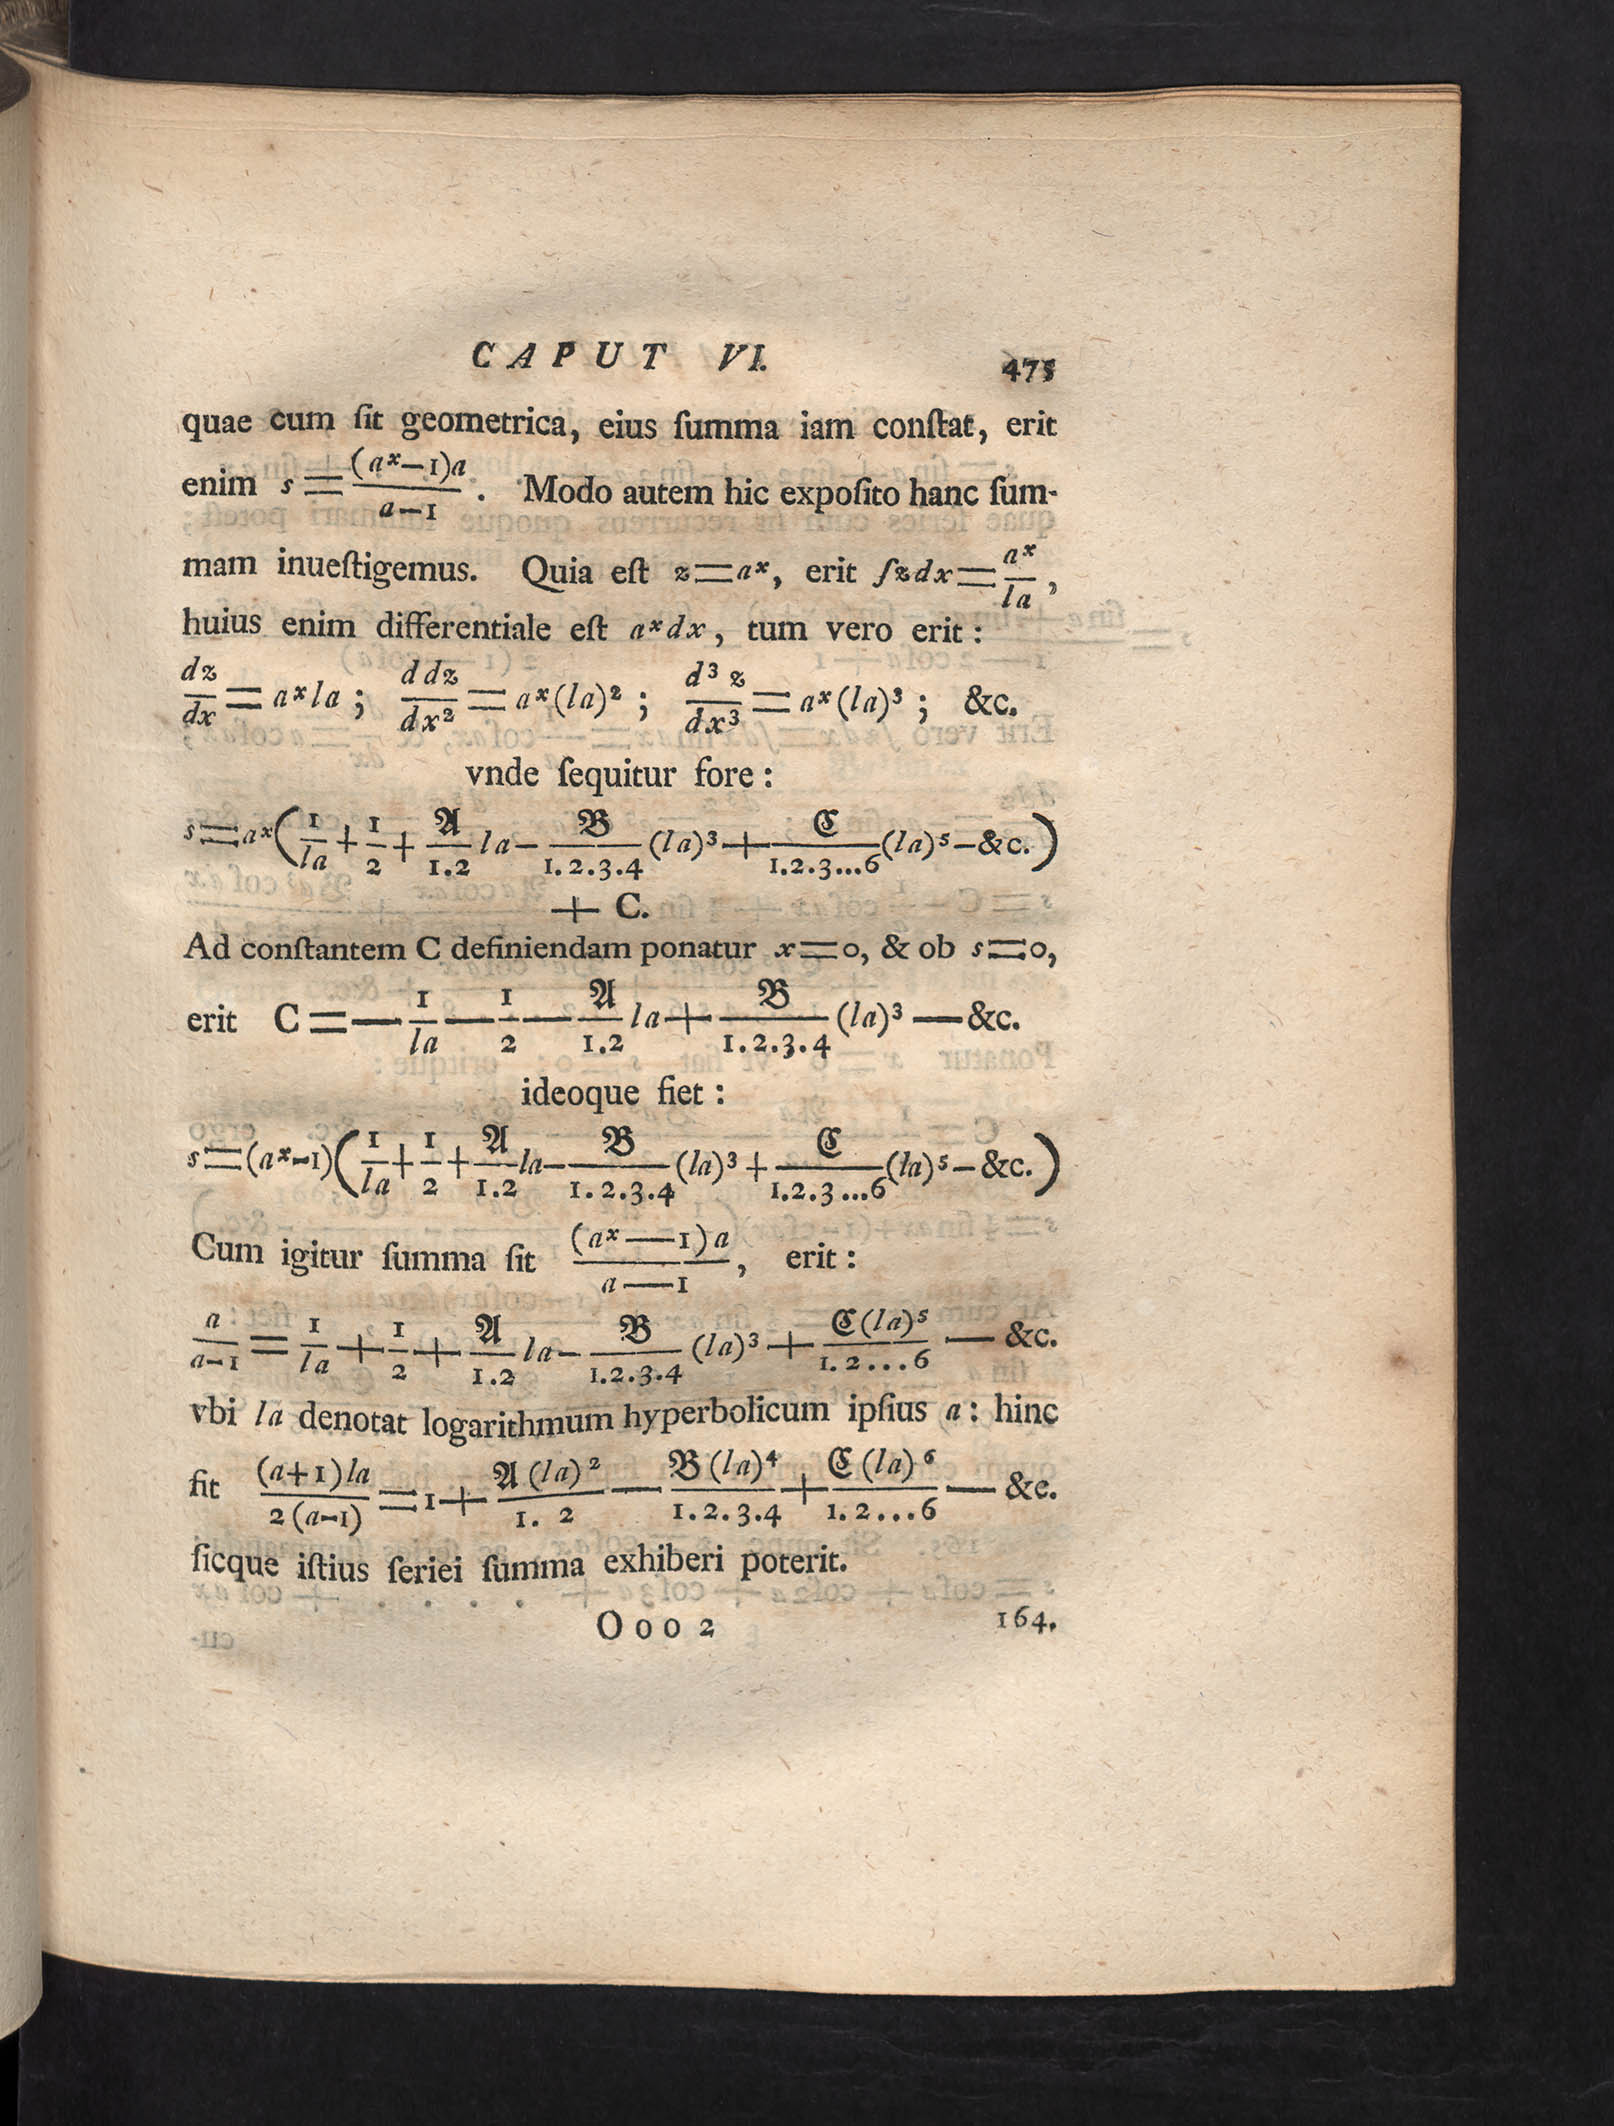 CAPUT VI. 475
quae cum ſit geometrica, eius ſumma iam conſtat, erit
enim s = (aˣ−1)a / a−1 . Modo autem hic expoſito hanc ſum-
mam inueſtigemus. Quia eſt z=aˣ, erit ſzdx = aˣ / la ,
huius enim differentiale eſt aˣdx, tum vero erit :
dz/dx = aˣla ; ddz/dx² = aˣ(la)² ; d³z/dx³ = aˣ(la)³ ; &c.
vnde ſequitur fore :
s=aˣ( 1/la + 1/2 + 𝔄/1.2 la − 𝔅/1.2.3.4 (la)³ + ℭ/1.2.3...6 (la)⁵ − &c. )
+ C.
Ad conſtantem C definiendam ponatur x=0, & ob s=0,
erit C = − 1/la − 1/2 − 𝔄/1.2 la + 𝔅/1.2.3.4 (la)³ − &c.
ideoque fiet :
s=(aˣ-1)( 1/la + 1/2 + 𝔄/1.2 la − 𝔅/1.2.3.4 (la)³ + ℭ/1.2.3...6 (la)⁵ − &c. )
Cum igitur ſumma ſit (aˣ−1)a / a−1 , erit :
a/a-1 = 1/la + 1/2 + 𝔄/1.2 la − 𝔅/1.2.3.4 (la)³ + ℭ(la)⁵/1.2...6 − &c.
vbi la denotat logarithmum hyperbolicum ipſius a : hinc
fit (a+1)la / 2(a-1) = 1 + 𝔄(la)²/1. 2 − 𝔅(la)⁴/1.2.3.4 + ℭ(la)⁶/1.2...6 − &c.
ſicque iſtius ſeriei ſumma exhiberi poterit.
Ooo 2 164.